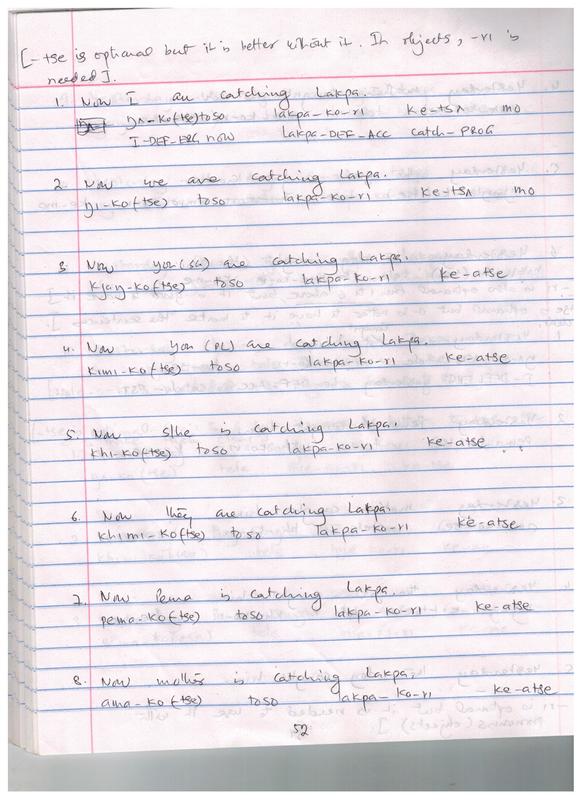 [-tse is optional but it is better without it. In objects, -ri is
needed].
1. Now I am catching Lakpa.
ŋʌ-ko(tse) toso lakpa-ko-ri ke-tsʌ mo
I-DEF-ERG now lakpa-DEF-ACC catch-PROG
2. Now we are catching Lakpa.
ŋi-ko(tse) toso lakpa-ko-ri ke-tsʌ mo
3. Now you (SG) are catching Lakpa.
kjaŋ-ko(tse) toso lakpa-ko-ri ke-atse
4. Now you (PL) are catching Lakpa.
kimi-ko(tse) toso lakpa-ko-ri ke-atse
5. Now s/he is catching Lakpa.
khi-ko(tse) toso lakpa-ko-ri ke-atse
6. Now they are catching Lakpa.
khimi-ko(tse) toso lakpa-ko-ri ke-atse
7. Now Pema is catching Lakpa.
pema-ko(tse) toso lakpa-ko-ri ke-atse
8. Now mother is catching Lakpa.
ama-ko(tse) toso lakpa-ko-ri - ke-atse
52